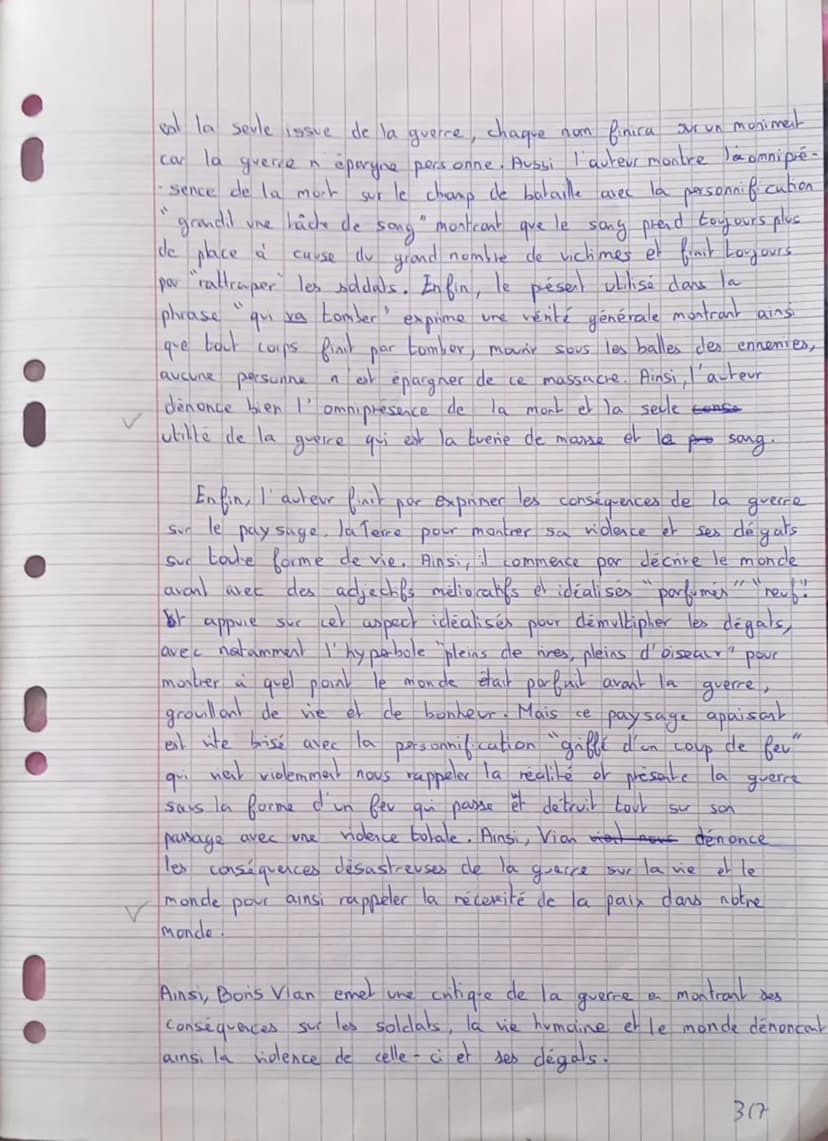 est la seule issue de la guerre, chaque nom finira sur un moniment
car la guerre n'épargne personne. Aussi l'auteur montre l'omnipré-
sence de la mort sur le champ de bataille avec la personnification
"grandit une tâche de sang" montrant que le sang prend toujours plus
de place à cause du grand nombre de victimes et finit toujours
par "rattraper" les soldats. Enfin, le présent utilisé dans la
phrase "qui va tomber" exprime une vérité générale montrant ainsi
que tout corps finit par tomber, mourir sous les balles des ennemies,
aucune personne n'est épargner de ce massacre. Ainsi, l'auteur
dénonce bien l'omniprésence de la mort et la seule
utilité de la guerre qui est la tuerie de masse et le sang.
Enfin, l'auteur finit par exprimer les conséquences de la guerre
sur le paysage, la Terre pour montrer sa violence et ses dégats
sur toute forme de vie. Ainsi, il commence par décrire le monde
avant avec des adjectifs mélioratifs et idéalisés "parfumés" "neuf".
appuie sur cet aspect idéalisés pour démultiplier les dégats,
avec notamment l'hyperbole "pleins de rires, pleins d'oiseaux" pour
montrer à quel point le monde était parfait avant la guerre,
grouillant de vie et de bonheur. Mais ce paysage apaisant
est vite brisé avec la personnification "giffle d'un coup de feu"
qui vient violemment nous rappeler la réalité et présente la guerre
sous la forme d'un feu qui passe et détruit tout sur son
passage avec une violence totale. Ainsi, Vian dénonce
les conséquences désastreuses de la guerre sur la vie et le
monde pour ainsi rappeler la nécessité de la paix dans notre
monde.
Ainsi, Boris Vian emet une critique de la guerre en montrant ses
conséquences sur les soldats, la vie humaine et le monde dénoncant
ainsi la violence de celle-ci et ses dégats.
3/7